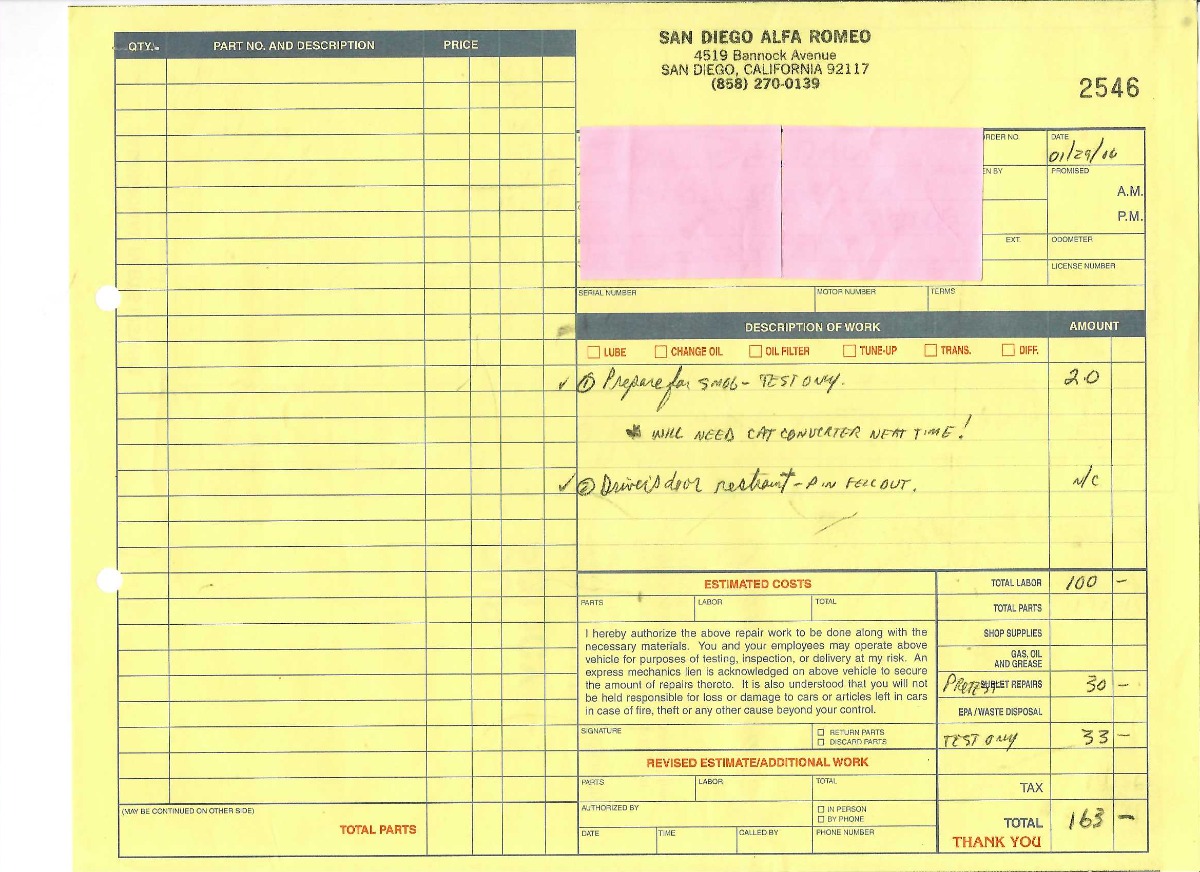 QTY. PART NO. AND DESCRIPTION PRICE
SAN DIEGO ALFA ROMEO
4519 Bannock Avenue
SAN DIEGO, CALIFORNIA 92117
(858) 270-0139
2546
RDER NO. DATE
01/29/06
EN BY PROMISED
A.M.
P.M.
EXT. ODOMETER
LICENSE NUMBER
SERIAL NUMBER MOTOR NUMBER TERMS
DESCRIPTION OF WORK AMOUNT
LUBE CHANGE OIL OIL FILTER TUNE-UP TRANS. DIFF.
① Prepare for SMOG - TEST ONLY. 2.0
* WILL NEED CAT CONVERTER NEXT TIME!
② Driver's door restraint - PIN FELL OUT. N/C
ESTIMATED COSTS
PARTS LABOR TOTAL
I hereby authorize the above repair work to be done along with the
necessary materials. You and your employees may operate above
vehicle for purposes of testing, inspection, or delivery at my risk. An
express mechanics lien is acknowledged on above vehicle to secure
the amount of repairs thereto. It is also understood that you will not
be held responsible for loss or damage to cars or articles left in cars
in case of fire, theft or any other cause beyond your control.
SIGNATURE
RETURN PARTS
DISCARD PARTS
REVISED ESTIMATE/ADDITIONAL WORK
PARTS LABOR TOTAL
AUTHORIZED BY
IN PERSON
BY PHONE
DATE TIME CALLED BY PHONE NUMBER
TOTAL LABOR 100 -
TOTAL PARTS
SHOP SUPPLIES
GAS, OIL
AND GREASE
PRETEST SUBLET REPAIRS 30 -
EPA / WASTE DISPOSAL
TEST ONLY 33 -
TAX
TOTAL 163 -
THANK YOU
(MAY BE CONTINUED ON OTHER SIDE)
TOTAL PARTS